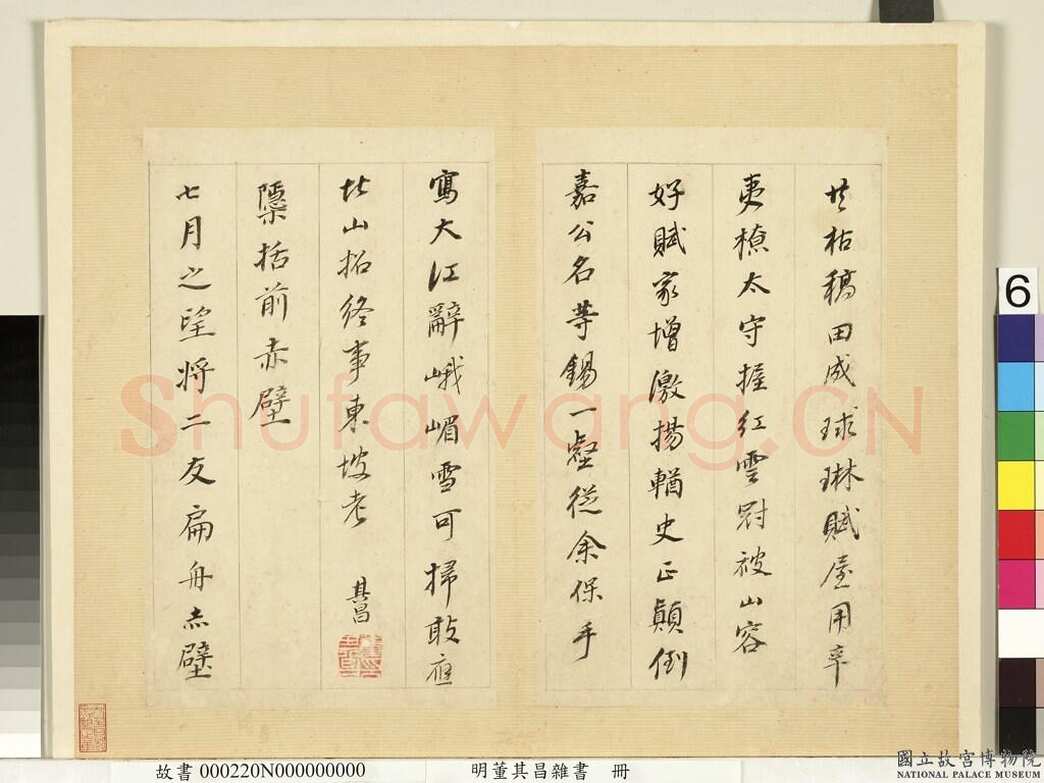 枯稿田成球琳賦屋用率
太守握紅雲尉被山容
好賦家增激揚輶史正顛倒
嘉公名等錫一壑從余保手
寫大江辭峨嵋雪可掃敢應
北山招終事東坡老
其昌
隱括前赤壁
七月之望將二友扁舟赤壁
Shufawang.CN
6
故書 000220N000000000
明董其昌雜書 冊
國立故宮博物院
NATIONAL PALACE MUSEUM